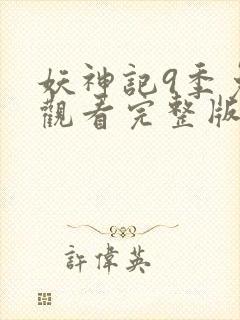 妖神記9季
觀看完整版
許偉英